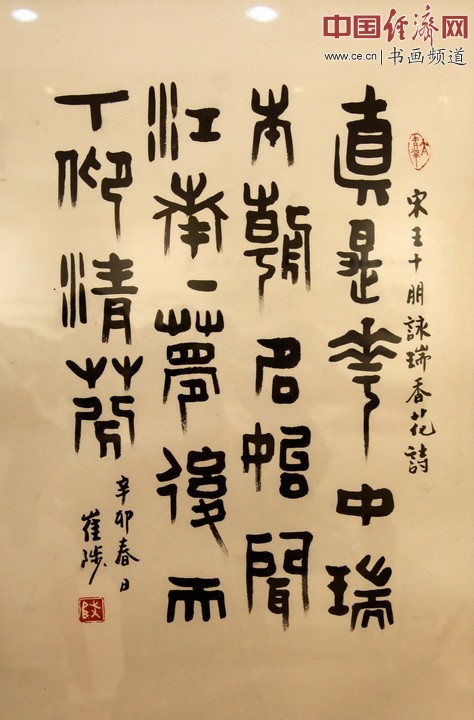 中国经济网
www.ce.cn 书画频道
宋王十朋詠瑞香花詩
真是華中瑞
本朝名始聞
江南一夢後天
下仰清芬
辛卯春日
崔陟